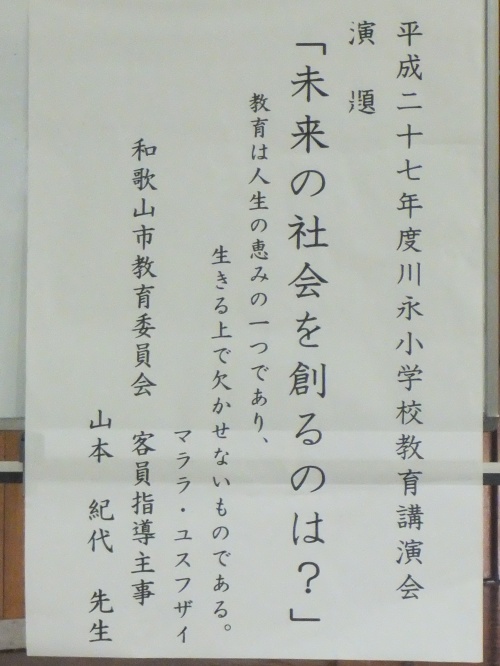 平成二十七年度川永小学校教育講演会
演題
「未来の社会を創るのは？」
教育は人生の恵みの一つであり、
生きる上で欠かせないものである。
マララ・ユスフザイ
和歌山市教育委員会 客員指導主事
山本 紀代 先生